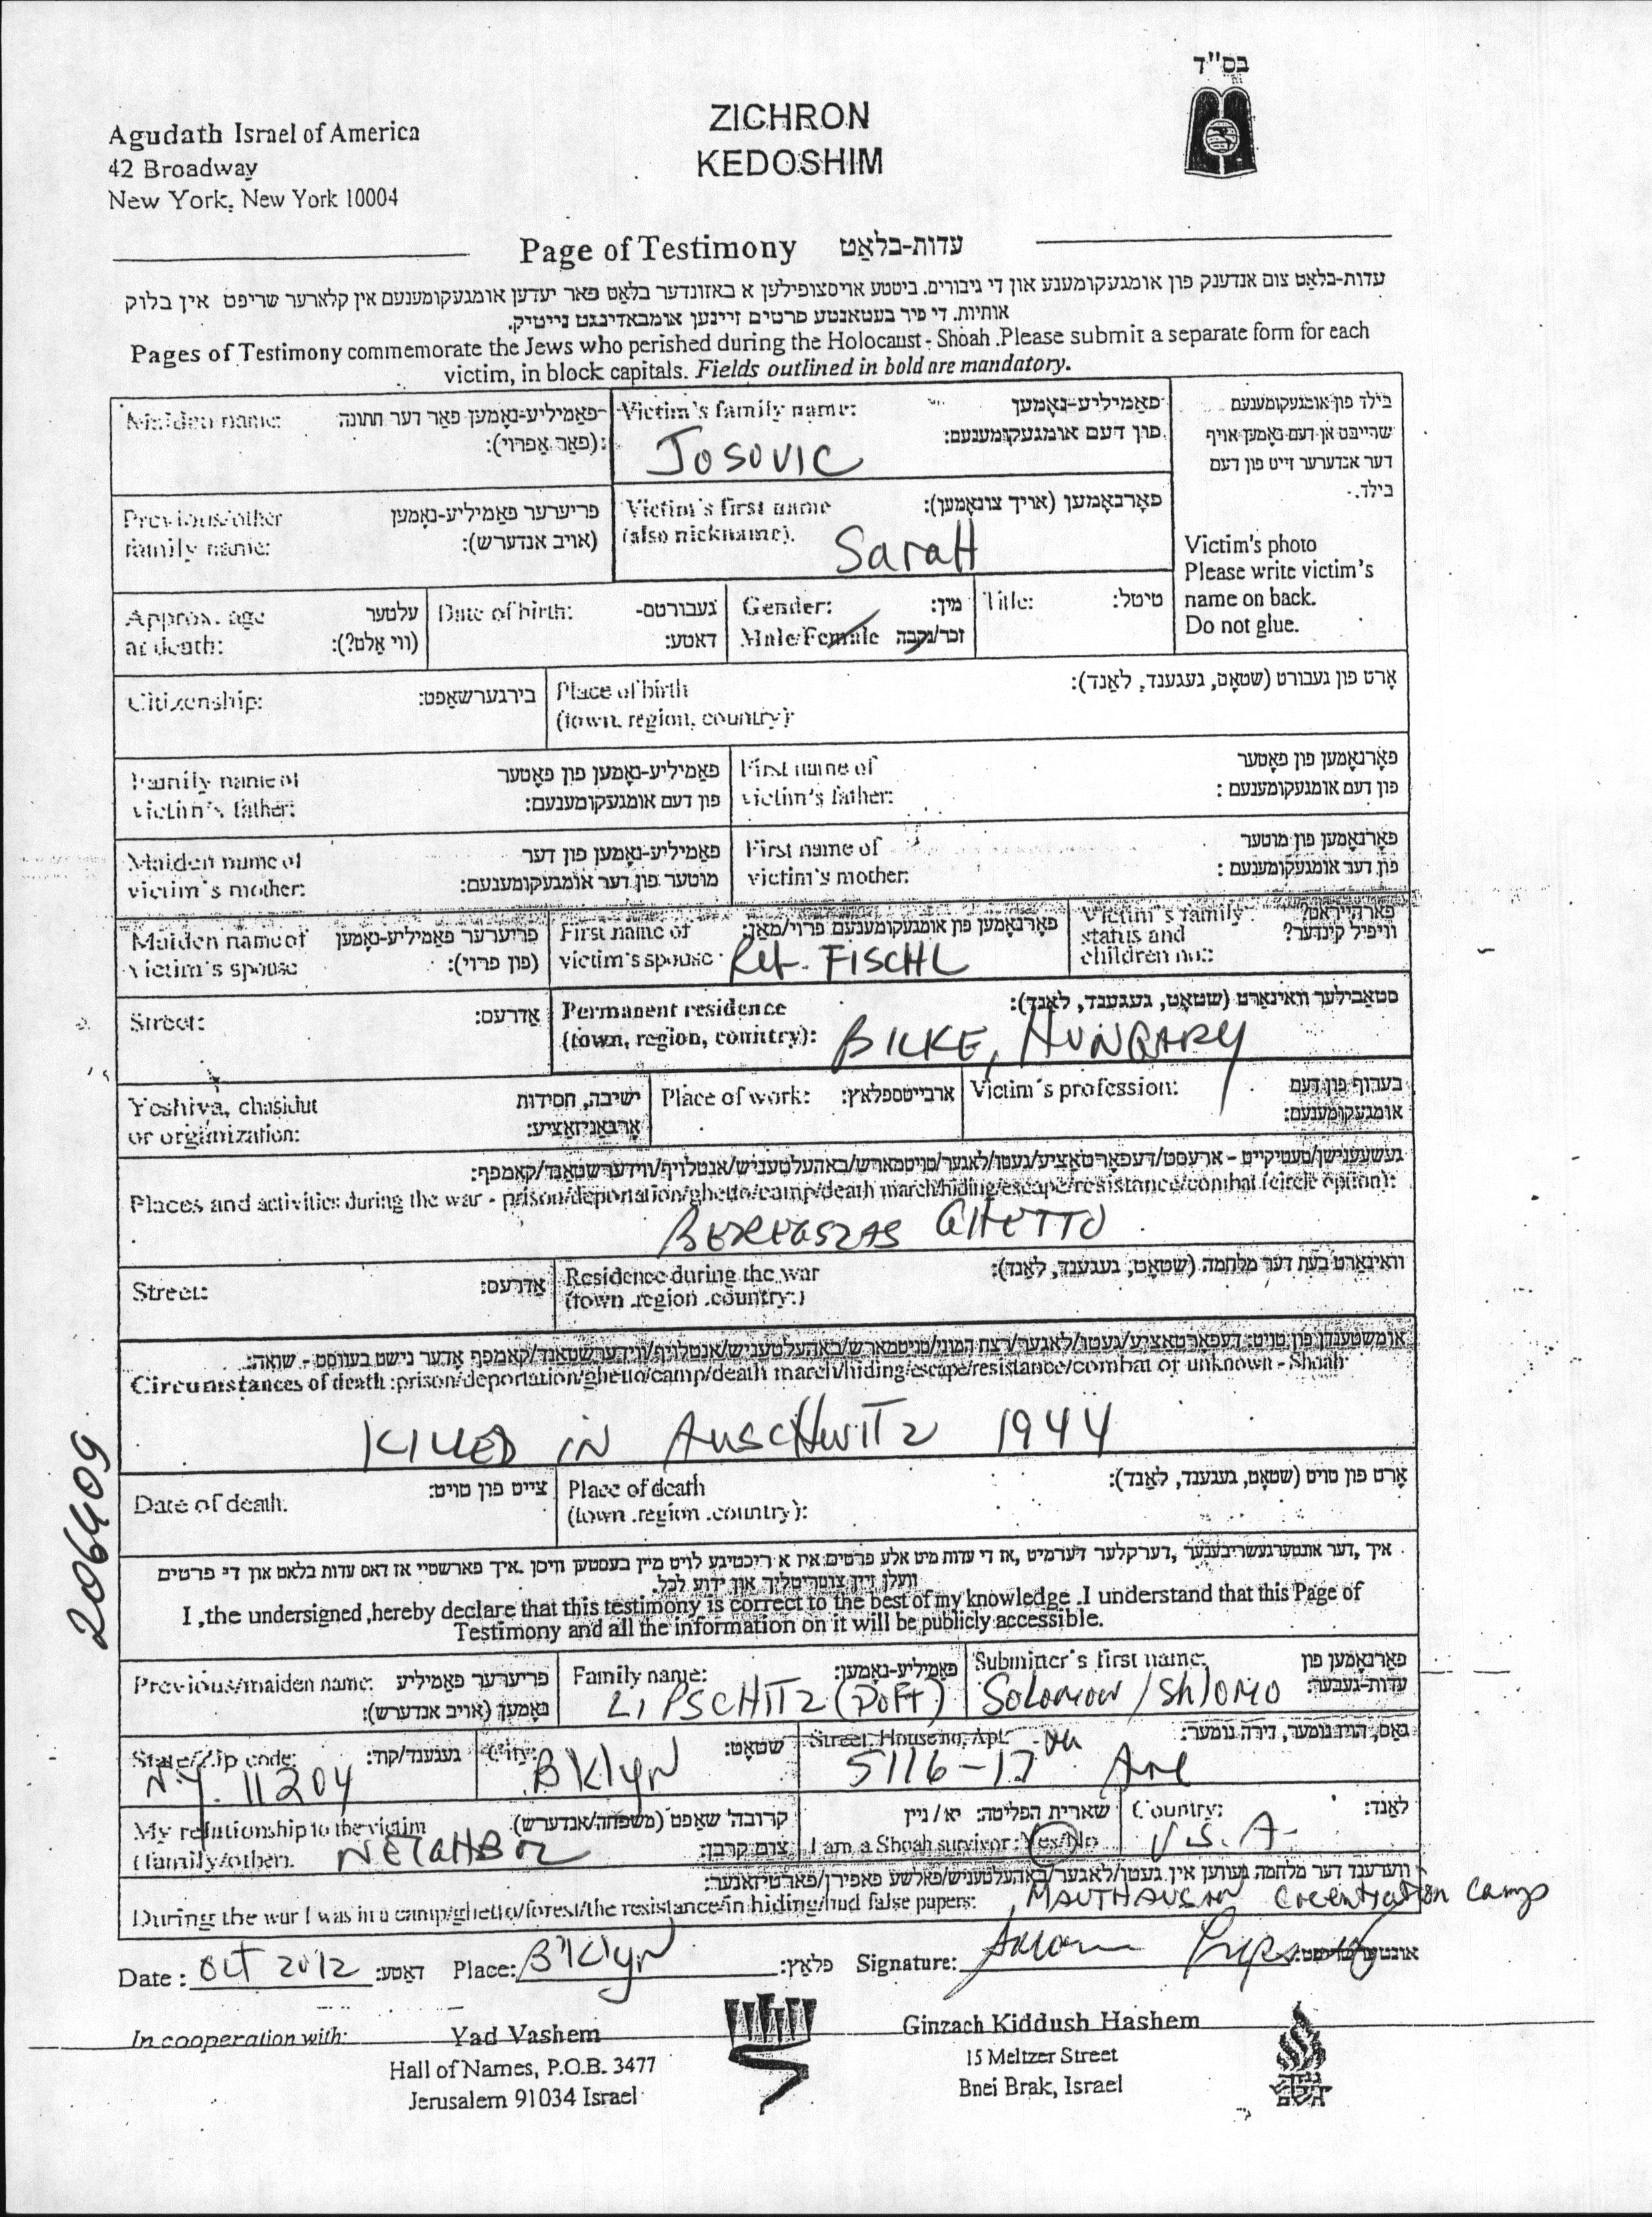 בס"ד
ZICHRON
KEDOSHIM
Agudath Israel of America
42 Broadway
New York, New York 10004
Page of Testimony עדות-בלאַט
עדות-בלאַט צום אנדענק פון אומגעקומענע און די גיבורים. ביטע אויסצופילען א באזונדער בלאַט פאר יעדען אומגעקומענעם אין קלארער שריפט אין בלוק
אותיות. די פיר בעטאנטע פרטים זיינען אומבאדינגט נייטיק.
Pages of Testimony commemorate the Jews who perished during the Holocaust - Shoah .Please submit a separate form for each
victim, in block capitals. Fields outlined in bold are mandatory.
Maiden name: פאַמיליע-נאָמען פאַר דער חתונה
(פאַר אַפרוי):
Victim's family name: פאַמיליע-נאָמען
פון דעם אומגעקומענעם:
Josovic
בילד פון אומגעקומענעם
שרייבט אן דעם נאָמען אויף
דער אנדערער זייט פון דעם
בילד.
Previous/other פריערער פאַמיליע-נאָמען
family name: (אויב אנדערש):
Victim's first name פאָרנאָמען (אויך צונאָמען):
(also nickname).
SaraH
Victim's photo
Please write victim's
name on back.
Do not glue.
Approx. age עלטער
at death: (ווי אַלט?):
Date of birth: געבורטס-
דאטע:
Gender: מין:
Male/Female זכר/נקבה
Title: טיטל:
Citizenship: בירגערשאַפט:
Place of birth אָרט פון געבורט (שטאָט, געגענד, לאַנד):
(town, region, country):
Family name of פאַמיליע-נאָמען פון פאָטער
victim's father: פון דעם אומגעקומענעם:
First name of פאָרנאָמען פון פאָטער
victim's father: פון דעם אומגעקומענעם :
Maiden name of פאַמיליע-נאָמען פון דער
victim's mother: מוטער פון דער אומגעקומענעם:
First name of פאָרנאָמען פון מוטער
victim's mother: פון דער אומגעקומענעם :
Maiden name of פריערער פאַמיליע-נאָמען
victim's spouse (פון פרוי):
First name of פאָרנאָמען פון אומגעקומענעם פרוי/מאַן:
victim's spouse FISCHL
Victim's family פארהייראט?
status and וויפיל קינדער?
children no.:
Street: אַדרעס:
Permanent residence סטאַבילער וואוינאָרט (שטאָט, געגענד, לאַנד):
(town, region, country): BILKE, HUNGARY
Yeshiva, chasidut ישיבה, חסידות
or organization: אָרגאַניזאַציע:
Place of work: ארבייטספלאץ:
Victim's profession: בערוף פון דעם
אומגעקומענעם:
Places and activities during the war - prison/deportation/ghetto/camp/death march/hiding/escape/resistance/combat (circle option):
BEREGSZAS GHETTO
Street: אַדרעס:
Residence during the war וואוינאָרט בעת דער מלחמה (שטאָט, געגענד, לאַנד):
(town .region .country:)
Circumstances of death :prison/deportation/ghetto/camp/death march/hiding/escape/resistance/combat or unknown - Shoah
KILLED IN AUSCHWITZ 1944
Date of death: צייט פון טויט:
Place of death אָרט פון טויט (שטאָט, געגענד, לאַנד):
(town .region .country):
206409
I ,the undersigned ,hereby declare that this testimony is correct to the best of my knowledge .I understand that this Page of
Testimony and all the information on it will be publicly accessible.
Previous/maiden name: פריערער פאַמיליע
נאָמען (אויב אנדערש):
Family name: פאַמיליע-נאָמען:
LIPSCHITZ (DOFT)
Submitter's first name: פאָרנאָמען פון
עדות-געבער:
Solomon / Shlomo
State/Zip code: געגענד/קוד:
N.Y. 11204
City: שטאָט:
BKlyN
Street, House no, Apt. גאַס, הויז נומער, דירה נומער:
5116-17 Ave
My relationship to the victim קרובה'שאַפט (משפחה/אנדערש)
(family/other). צום קרבן:
NEIGHBOR
שארית הפליטה: יא/ניין
I am a Shoah survivor: Yes/No
Country: לאַנד:
U.S.A.
During the war I was in a camp/ghetto/forest/the resistance/in hiding/had false papers: MAUTHAUSAN camp
Date : Oct 2012 דאַטע: Place: B'Klyn פלאַץ: Signature:
In cooperation with: Yad Vashem
Hall of Names, P.O.B. 3477
Jerusalem 91034 Israel
Ginzach Kiddush Hashem
15 Meltzer Street
Bnei Brak, Israel